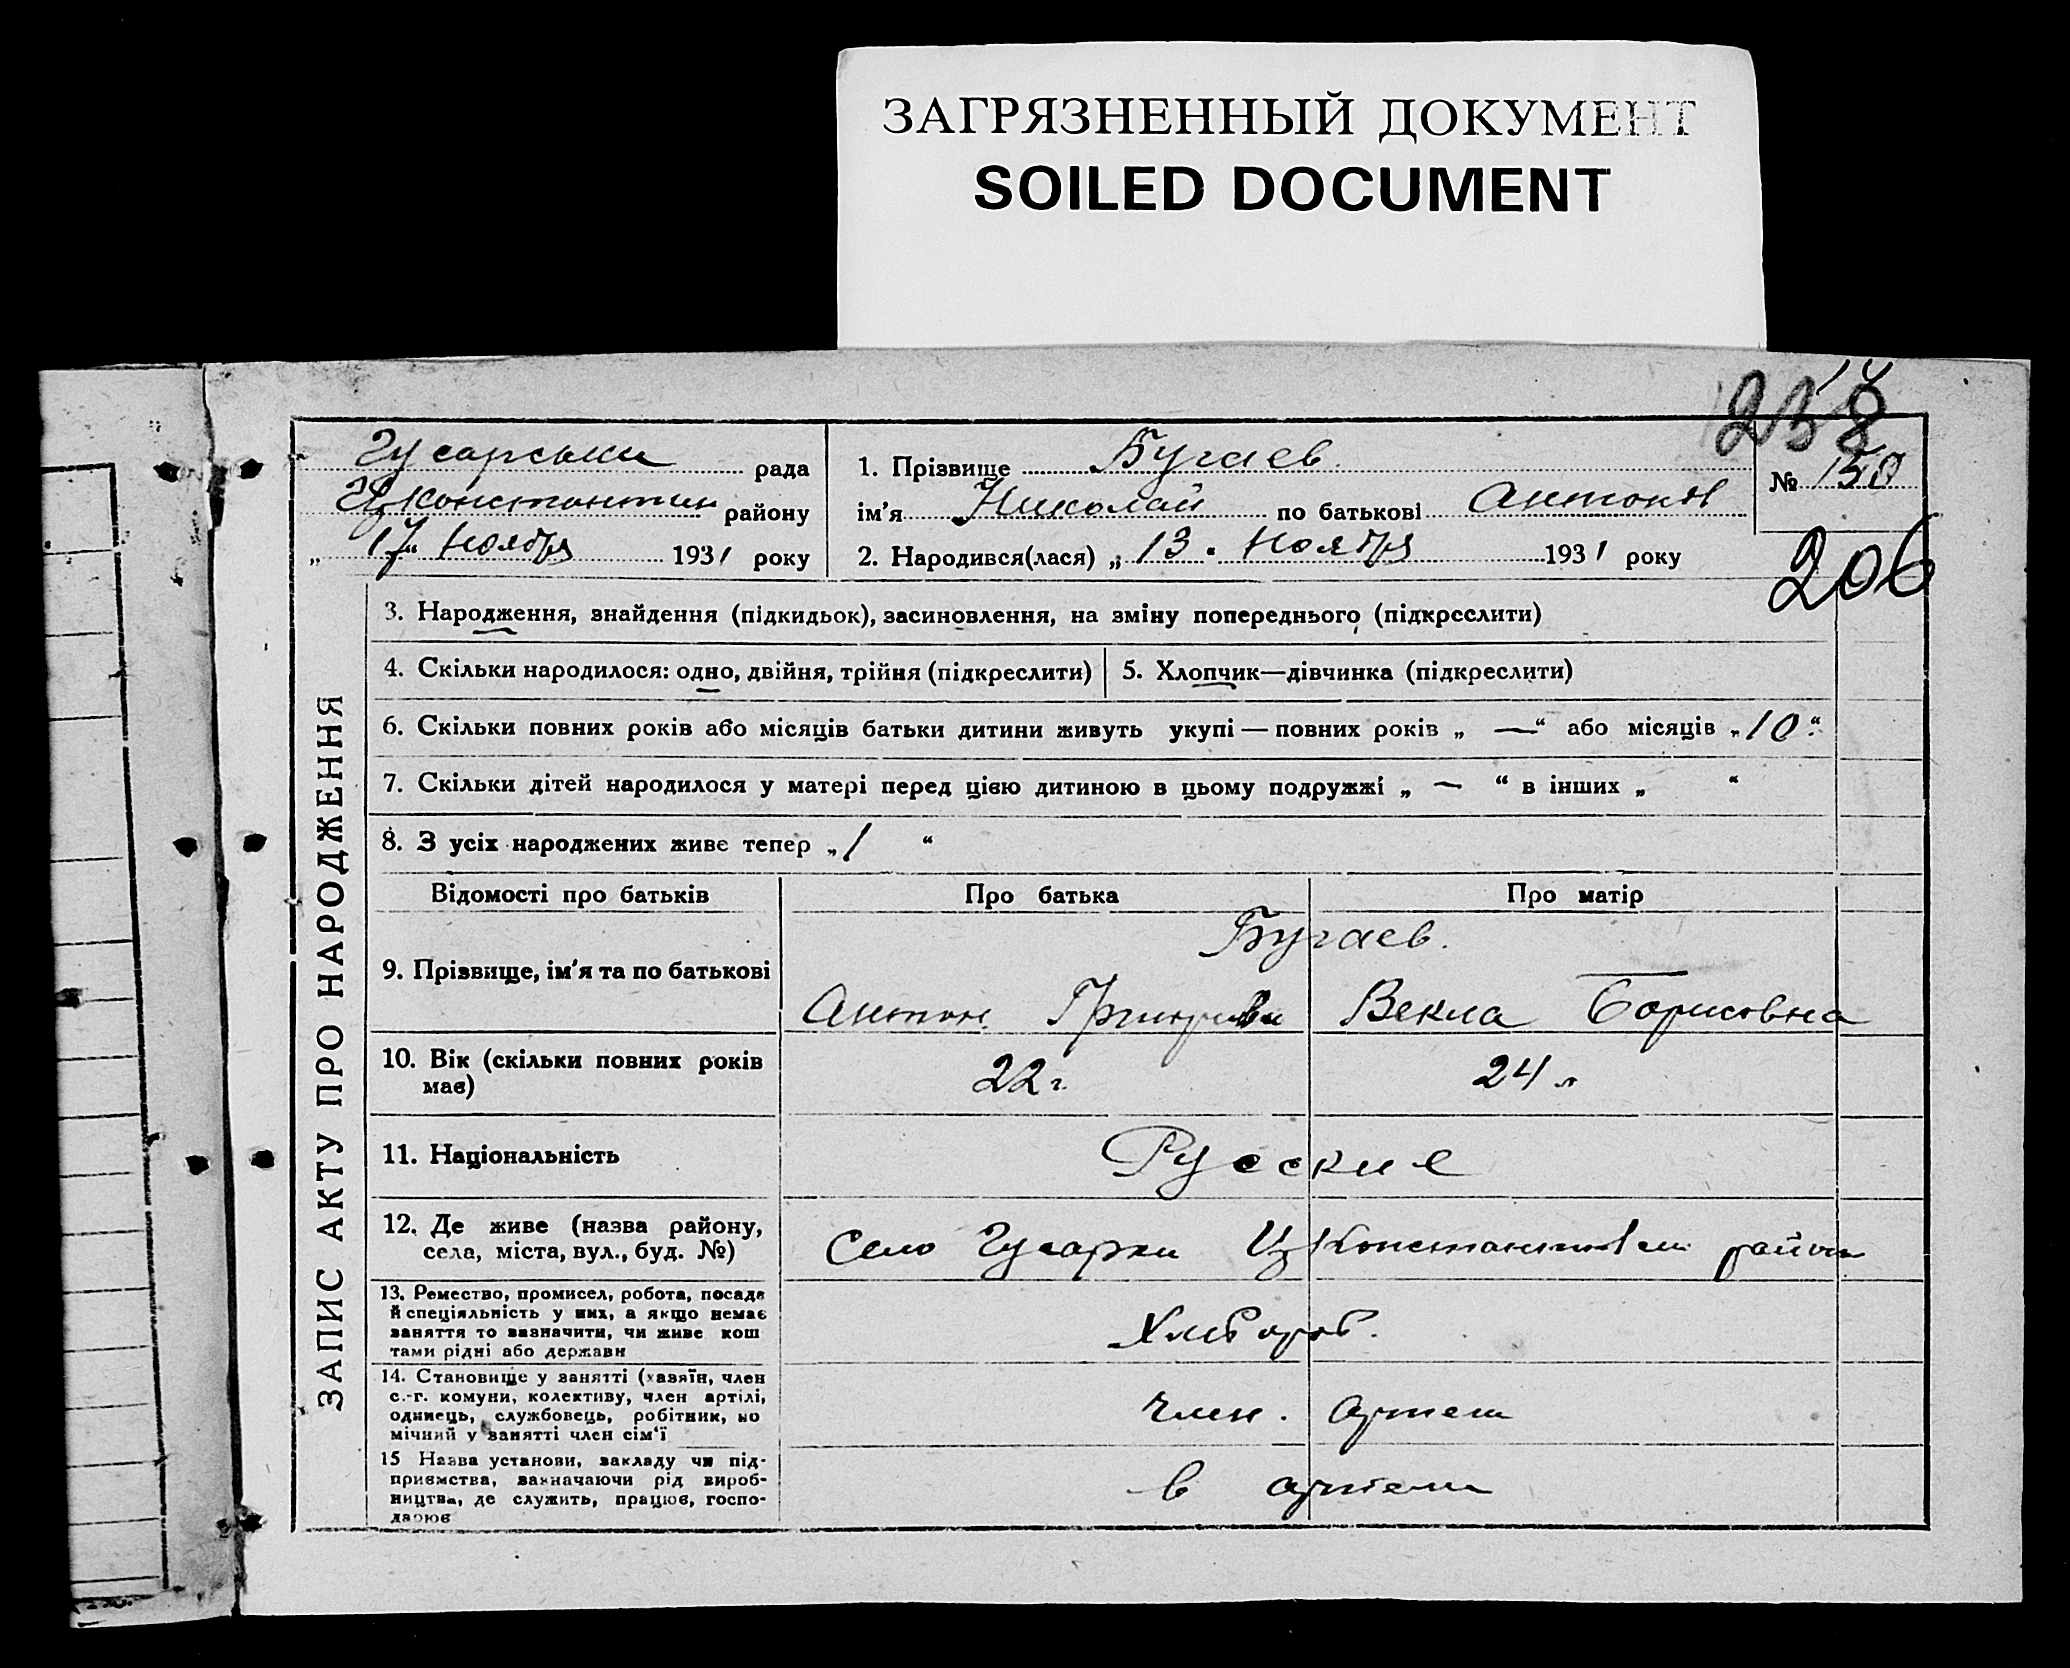 ЗАГРЯЗНЕННЫЙ ДОКУМЕНТ
SOILED DOCUMENT
238
Гусарськи рада
Цконстантин району
„ 17 " Ноября 1931 року
1. Прізвище Бугаев
ім'я Николай по батькові Антонов
2. Народився(лася) „ 13 " Ноября 1931 року
№ 150
206
ЗАПИС АКТУ ПРО НАРОДЖЕННЯ
3. Народження, знайдення (підкидьок), засиновлення, на зміну попереднього (підкреслити)
4. Скільки народилося: одно, двійня, трійня (підкреслити)
5. Хлопчик—дівчинка (підкреслити)
6. Скільки повних років або місяців батьки дитини живуть укупі — повних років „ — “ або місяців „ 10 “
7. Скільки дітей народилося у матері перед цією дитиною в цьому подружжі „ — “ в інших „ “
8. З усіх народжених живе тепер „ 1 “
Відомості про батьків Про батька Про матір
Бугаев.
9. Прізвище, ім'я та по батькові
Антон Векла Борисовна
10. Вік (скільки повних років має)
22 г. 24 л
11. Національність
Русские
12. Де живе (назва району,
села, міста, вул., буд. №)
Село Гусарки район
13. Ремество, промисел, робота, посада
й спеціяльність у них, а якщо немає
заняття то визначити, чи живе кош
тами рідні або держави
Хлебороб.
14. Становище у занятті (хазяїн, член
с.-г. комуни, колективу, член артілі,
одинець, службовець, робітник, по
мічний у занятті член сім'ї
Член. артели
15 Назва установи, закладу чи під-
приємства, зазначаючи рід вироб-
ництва, де служить, працює, госпо-
дарює
в артели